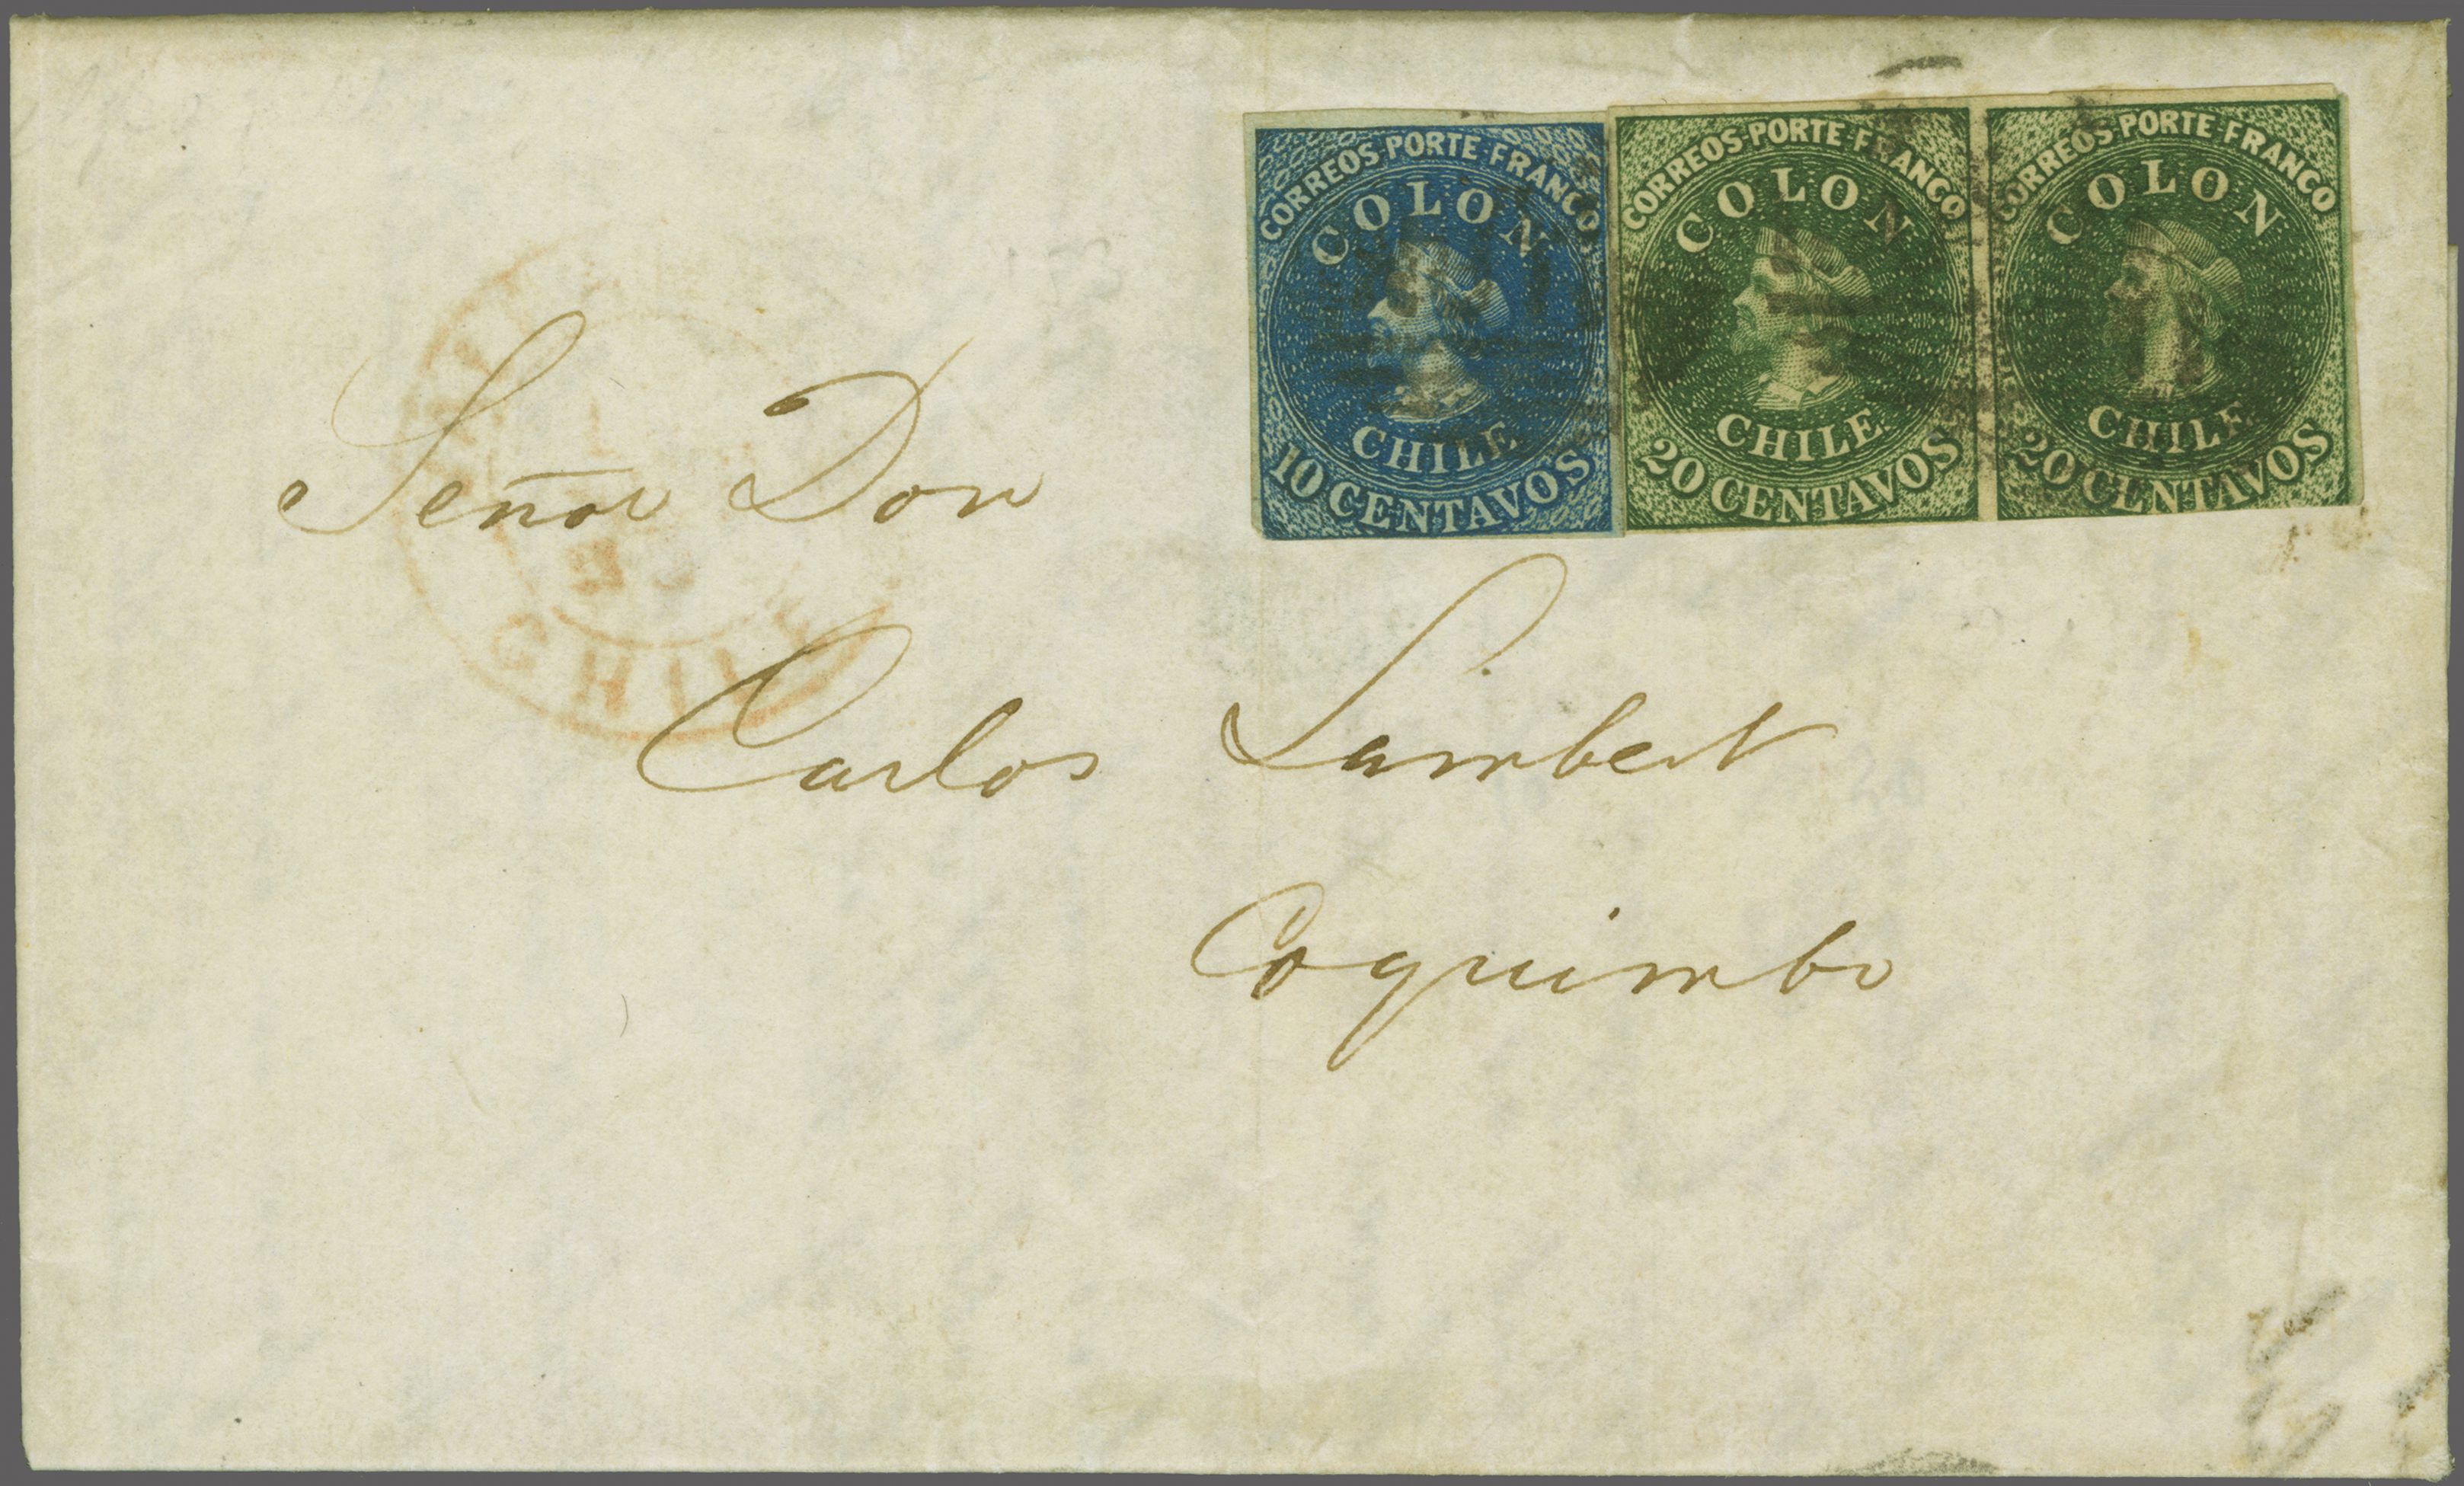 CORREOS·PORTE·FRANCO
COLON
CHILE
10 CENTAVOS
CORREOS·PORTE·FRANCO
COLON
CHILE
20 CENTAVOS
CORREOS·PORTE·FRANCO
COLON
CHILE
20 CENTAVOS
Señor Don
Carlos Lambert
Coquimbo
CHILE